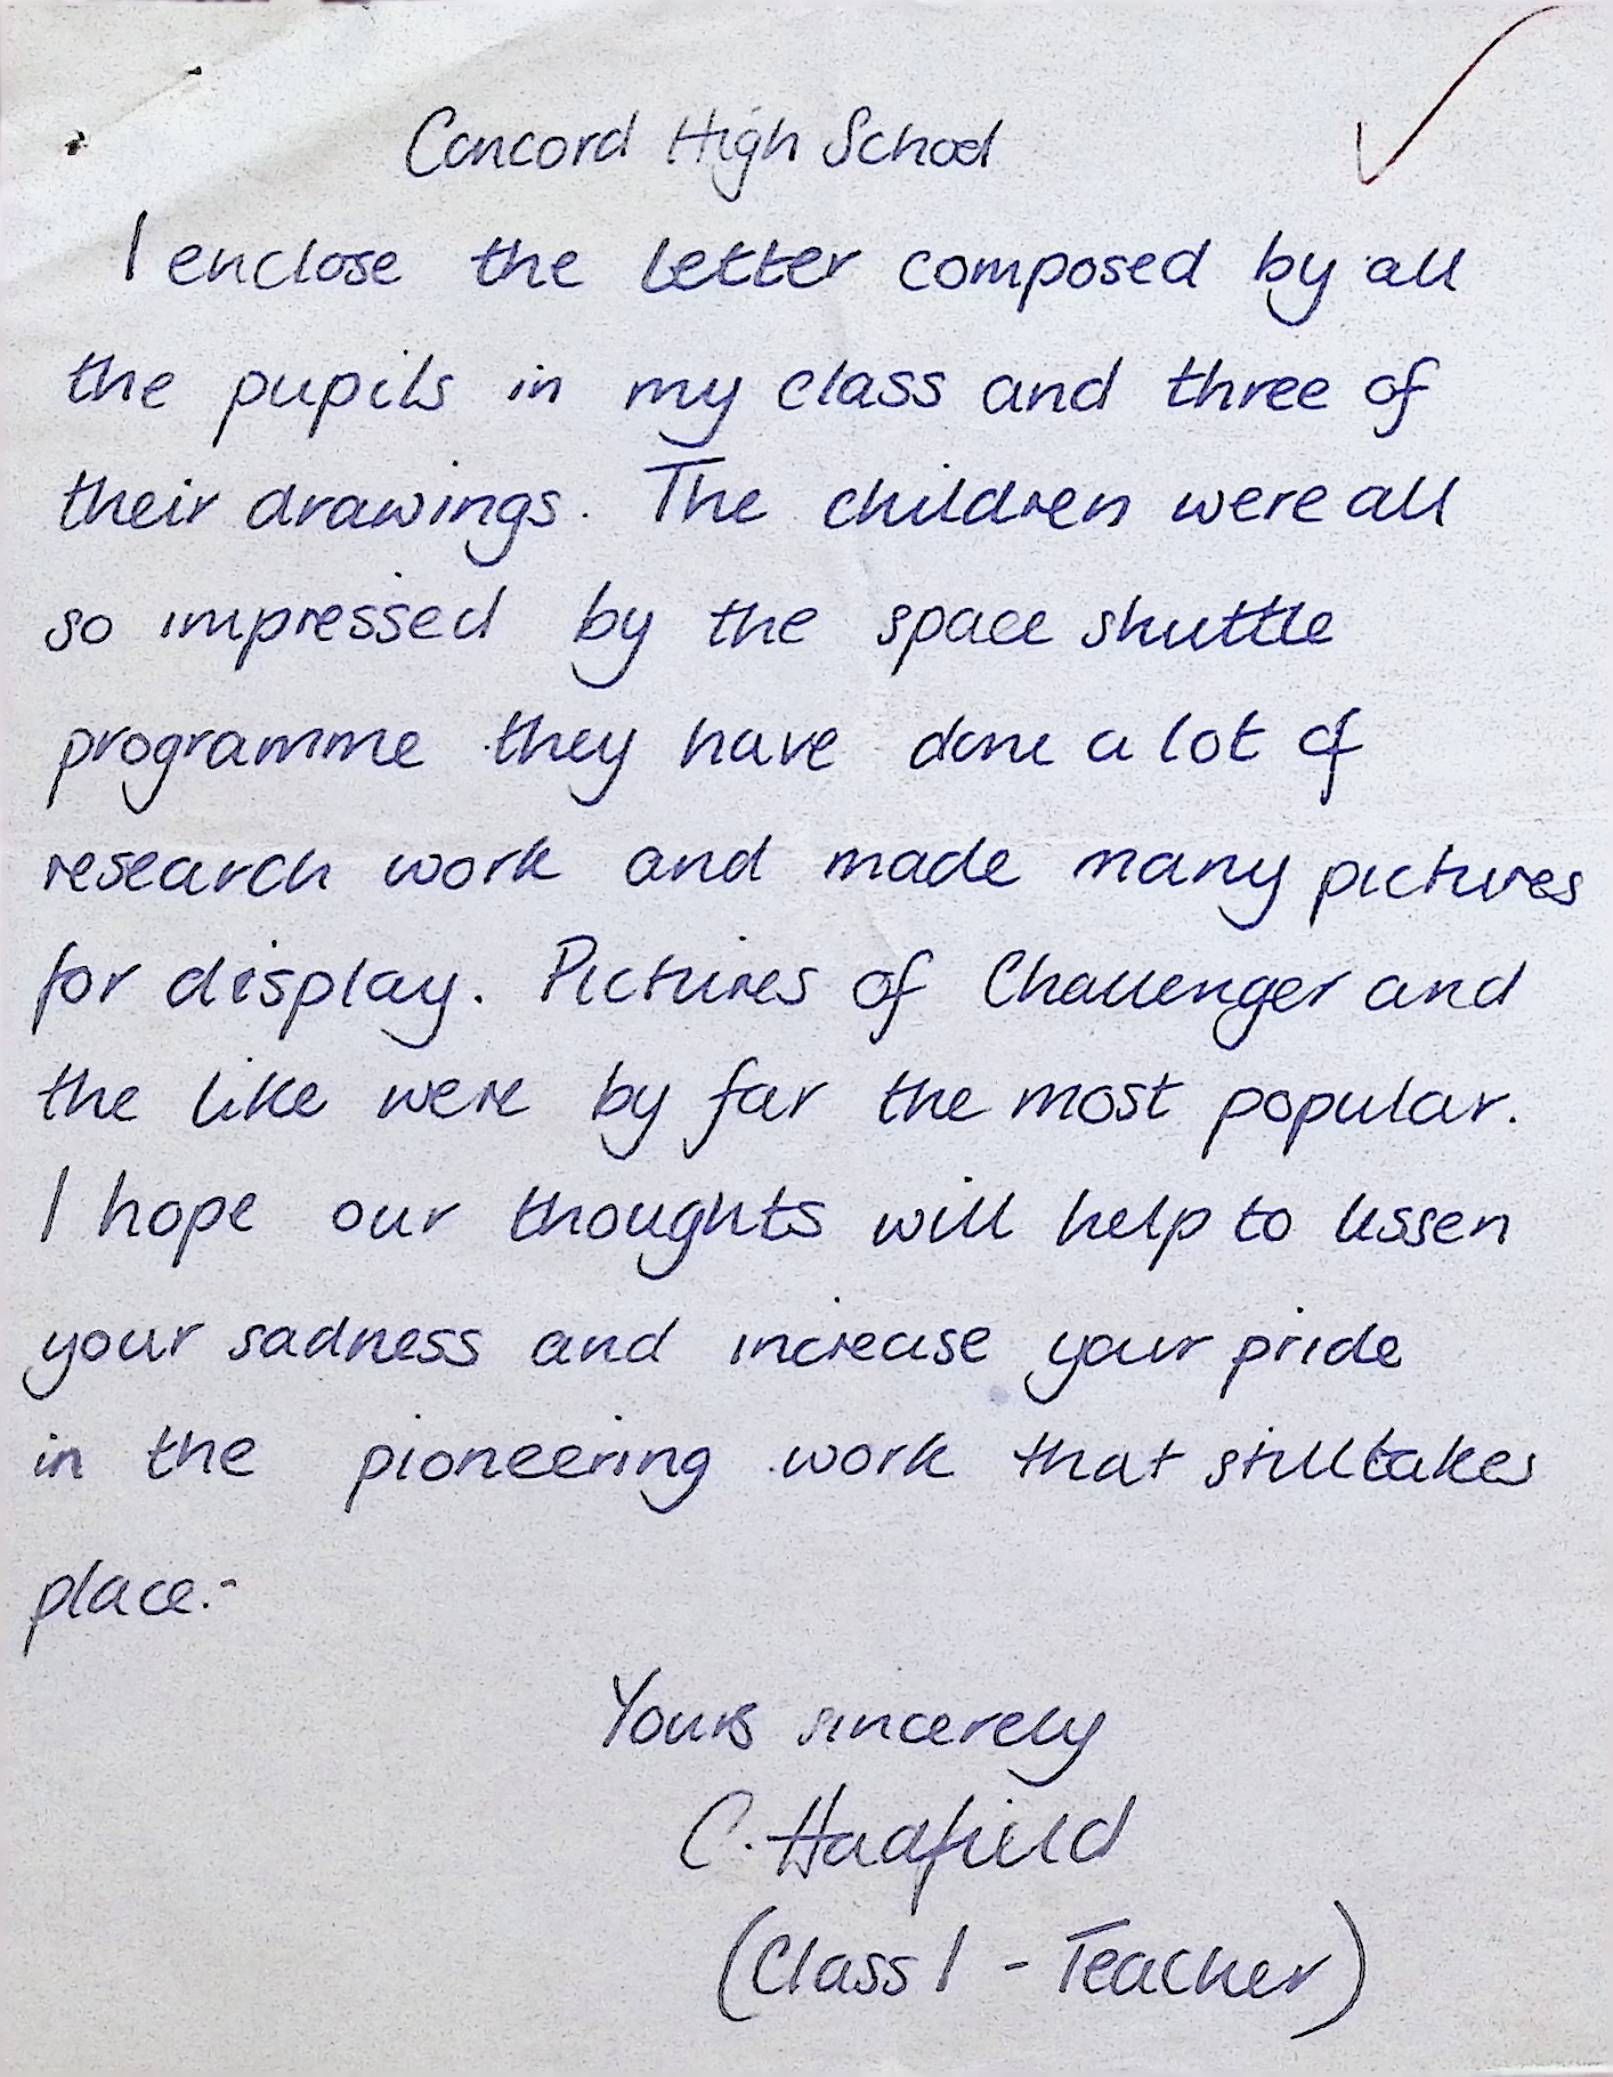 Concord High School
I enclose the letter composed by all
the pupils in my class and three of
their drawings. The children were all
so impressed by the space shuttle
programme they have done a lot of
research work and made many pictures
for display. Pictures of Challenger and
the like were by far the most popular.
I hope our thoughts will help to lessen
your sadness and increase your pride
in the pioneering work that still takes
place.-
Yours sincerely
C. Hadfield
(Class 1 - Teacher)